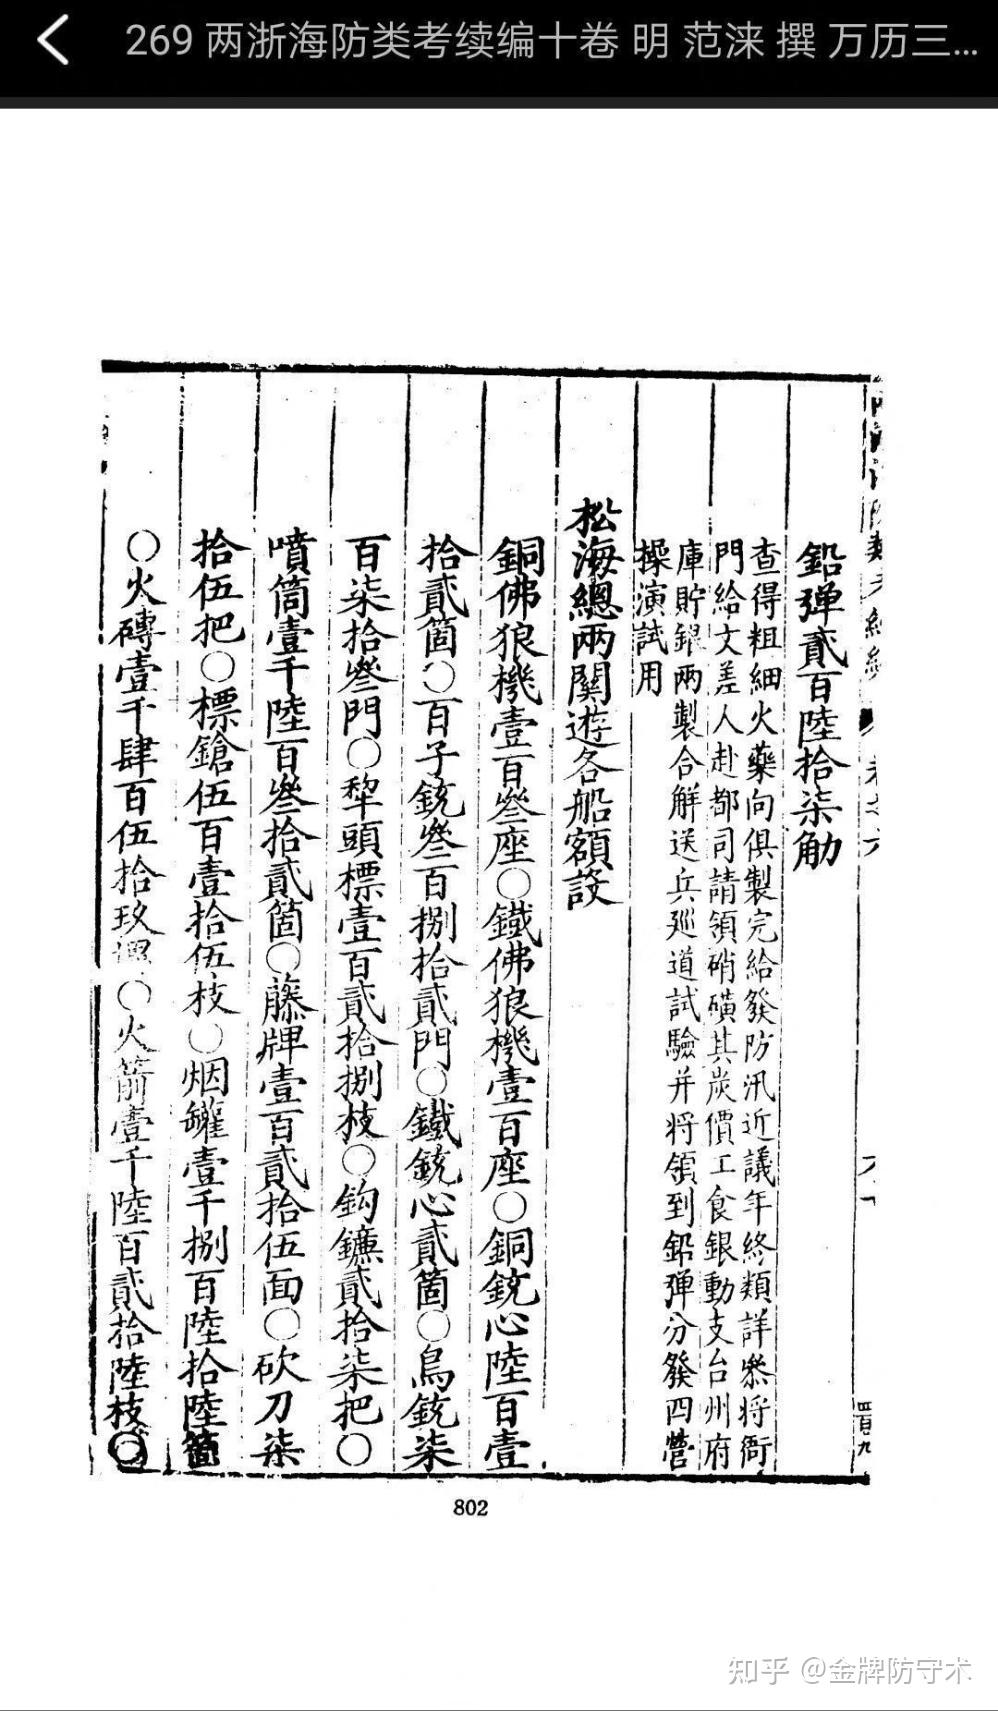 269 两浙海防类考续编十卷 明 范涞 撰 万历三...
鉛彈貳百陸拾柒觔
查得粗細火藥向俱製完給發防汛近議年終類詳叅將衙
門給文差人赴都司請領硝磺其炭價工食銀動支台州府
庫貯銀兩製合解送兵巡道試驗并將領到鉛彈分發四營
操演試用
松海總兩關遊各船額設
銅佛狼機壹百叄座〇鐵佛狼機壹百座〇銅銃心陸百壹
拾貳箇〇百子銃叄百捌拾貳門〇鐵銃心貳箇〇鳥銃柒
百柒拾叄門〇犂頭標壹百貳拾捌枝〇鈎鐮貳拾柒把〇
噴筒壹千陸百叄拾貳箇〇藤牌壹百貳拾伍面〇砍刀柒
拾伍把〇標鎗伍百壹拾伍枝〇烟罐壹千捌百陸拾陸箇
〇火磚壹千肆百伍拾玖〇火箭壹千陸百貳拾陸枝〇
802
知乎 @金牌防守术